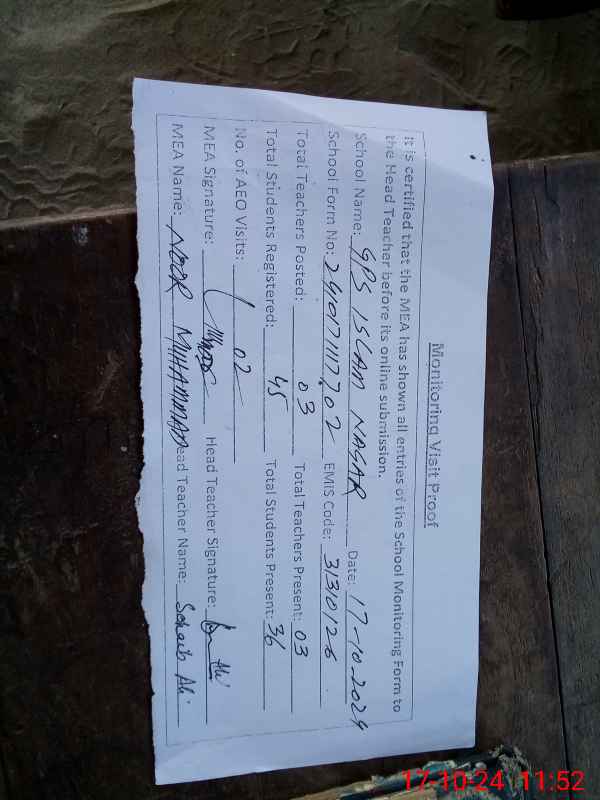 Monitoring Visit Proof
It is certified that the MEA has shown all entries of the School Monitoring Form to
the Head Teacher before its online submission.
School Name: GPS ISLAM NAGAR Date: 17-10-2024
School Form No: EMIS Code: 31310126
Total Teachers Posted: 03 Total Teachers Present: 03
Total Students Registered: 45 Total Students Present: 36
No. of AEO Visits: 02
MEA Signature: Head Teacher Signature:
MEA Name: NOOR MUHAMMAD ead Teacher Name: Sohaib Ali
17-10-24 11:52